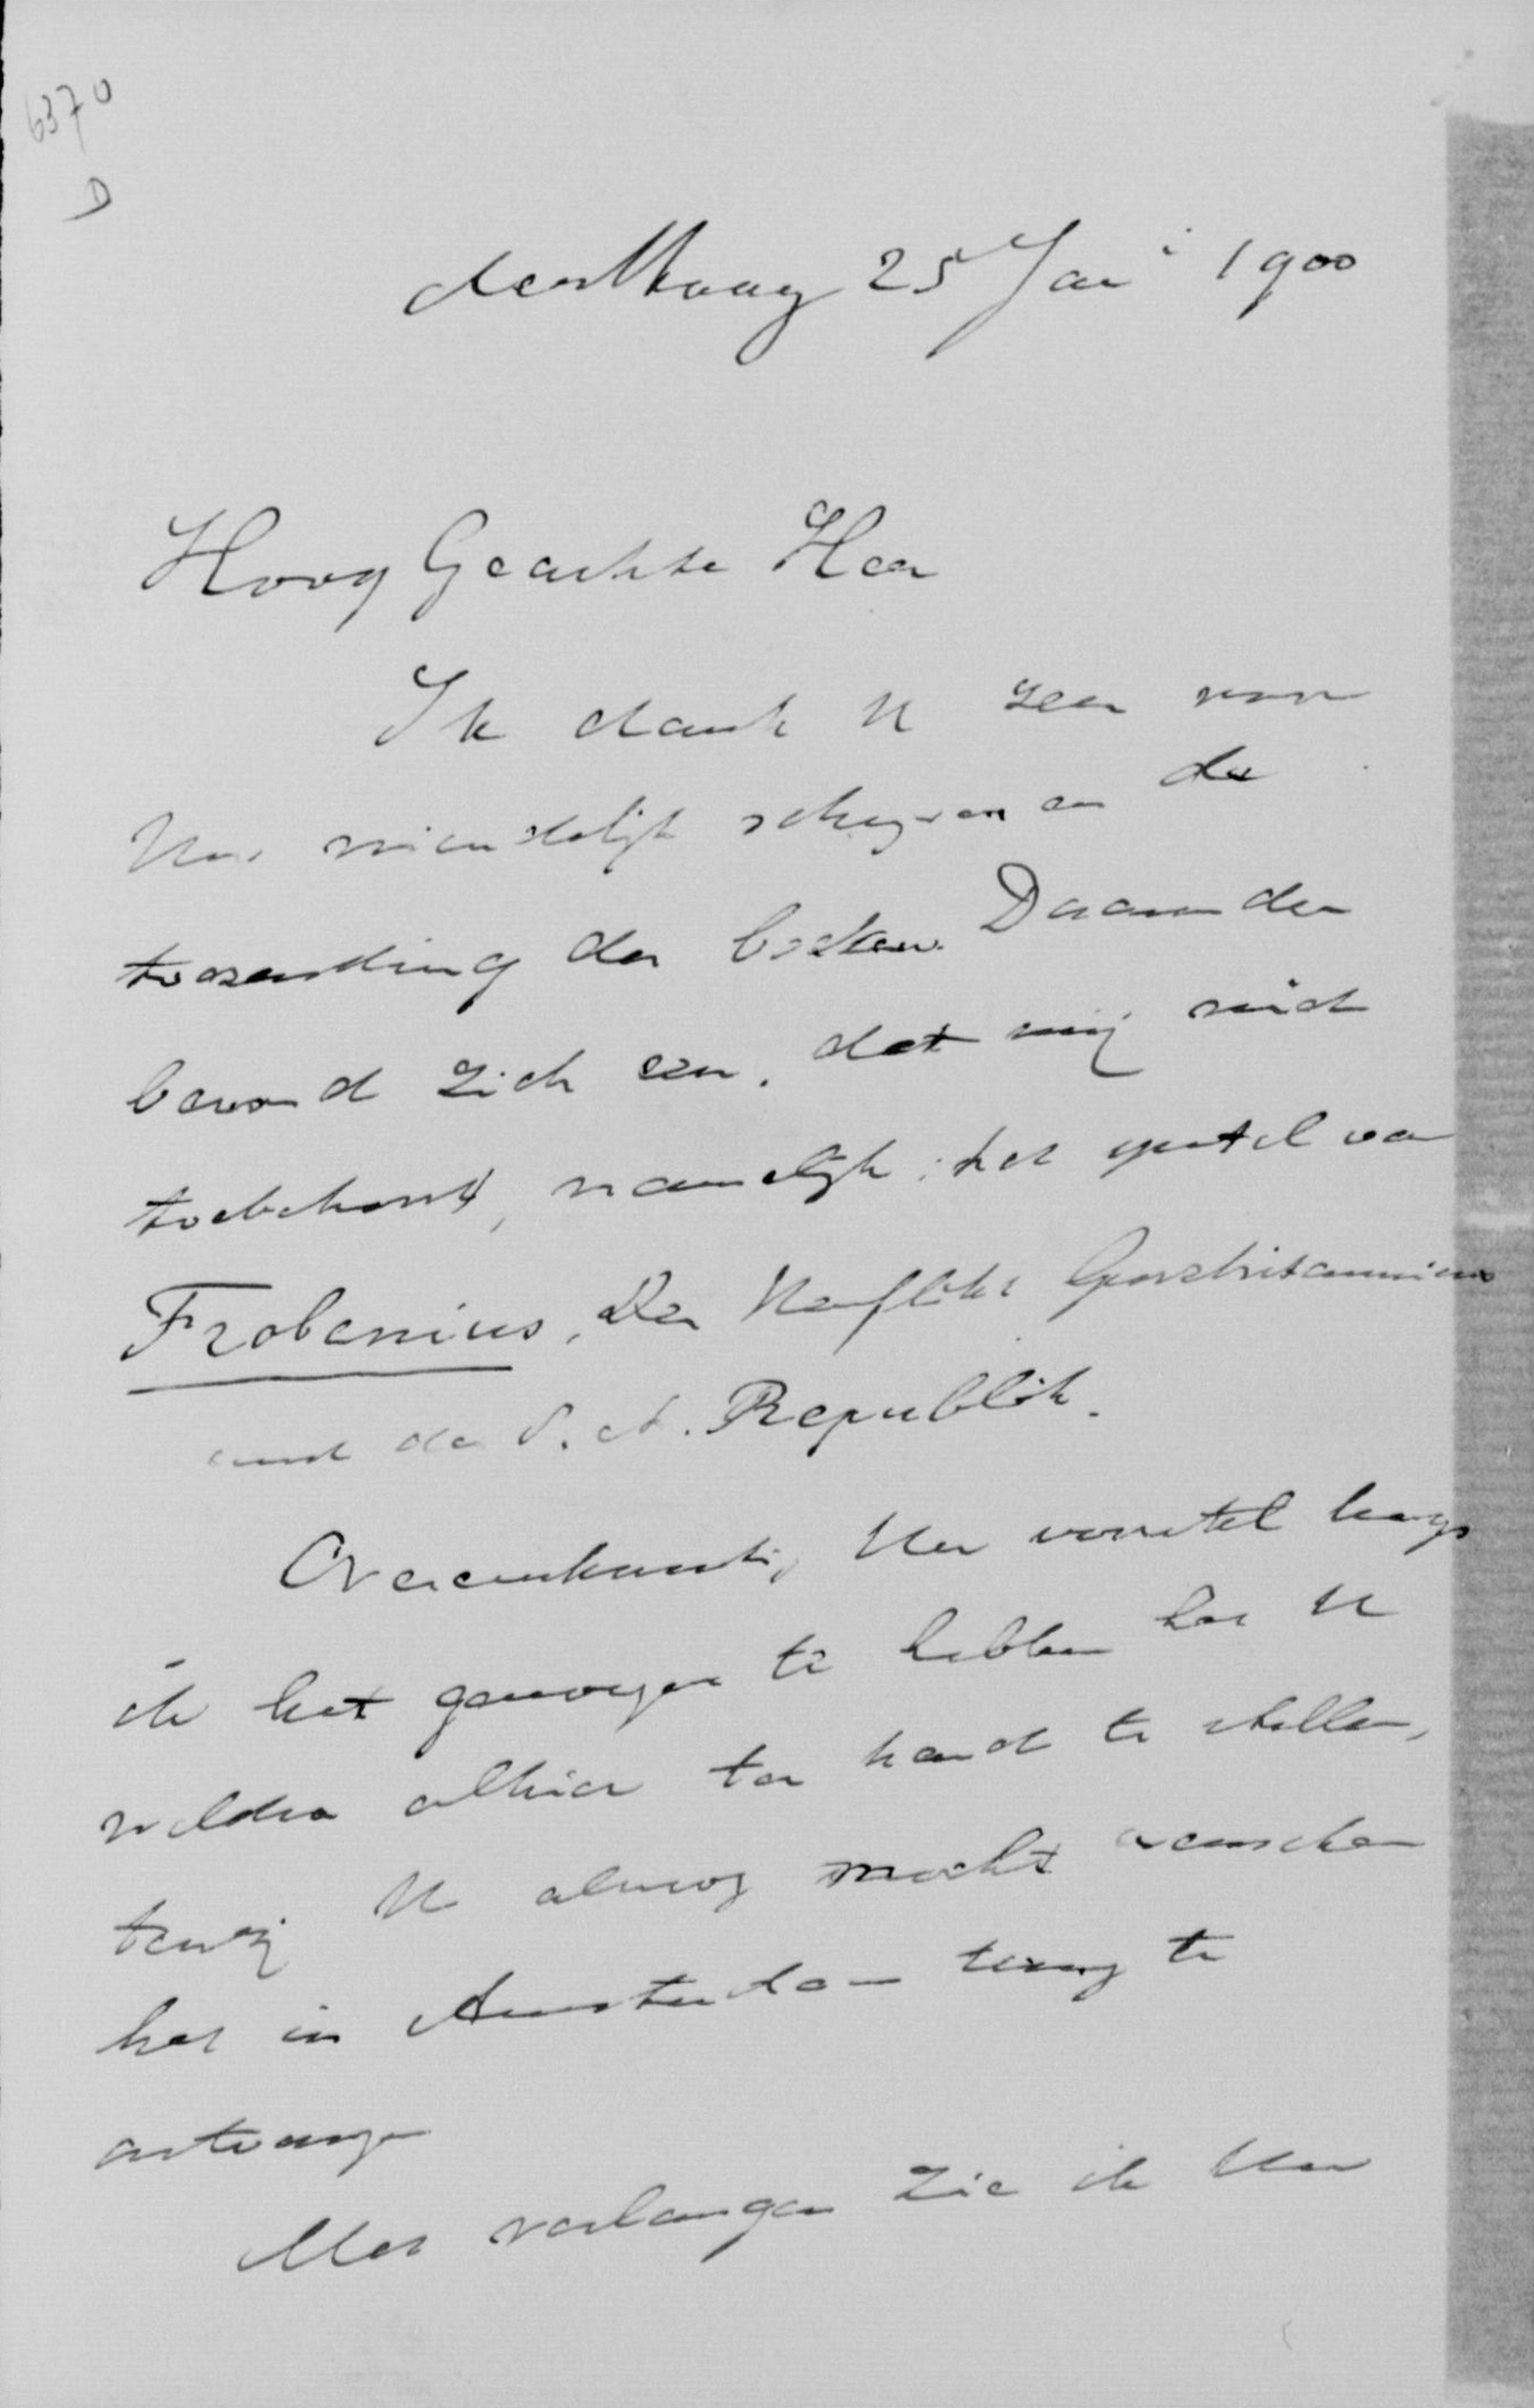 6370
D
den Haag 25 Jan: 1900
Hoog Geachte Heer
Ik dank U zeer voor
Uw vriendelijk schrijven en de
toezending der boeken. Daaronder
bevond zich een, dat mij niet
toebehoort, namelijk: het opstel van
Frobenius, Der Konflikt Grossbritanniens
und der S. A. Republik.
Overeenkomstig Uw voorstel hoop
ik het genoegen te hebben het U
weldra alhier ter hand te stellen,
tenzij U alsnog mocht wenschen
het in Amsterdam terug te
ontvangen
Met verlangen zie ik Uw